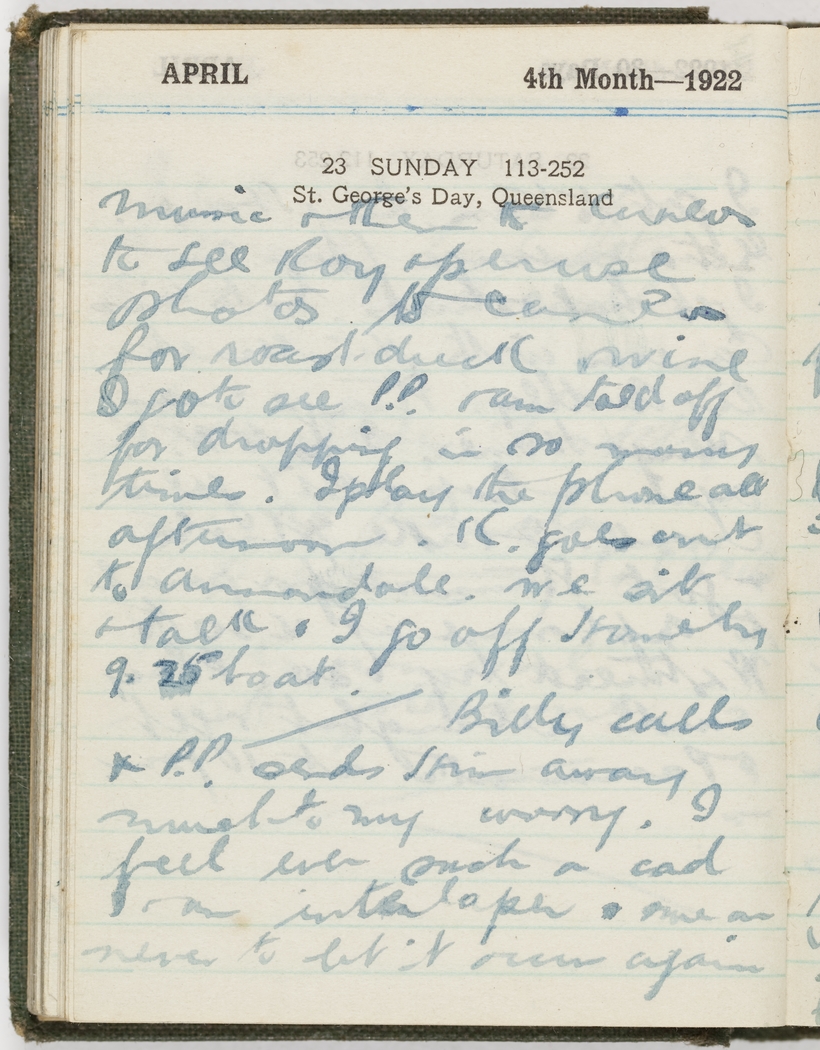 APRIL 4th Month—1922
23 SUNDAY 113-252
St. George's Day, Queensland
Music & then to
to see Roy & peruse
photos to
for roast duck & wine
I go to see P.P. & am told off
for dropping in so many
times. I play the phone all
afternoon. K. goes out
to Annandale. We sit
& talk & I go off home by
9.25 boat.
Billy calls
& P.P. sends him away
much to my worry. I
feel ever such a cad
& an interloper & mean
never to let it occur again